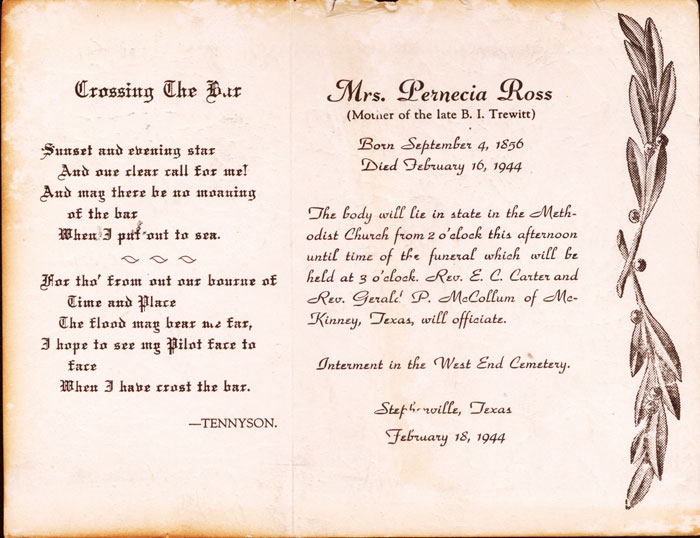 Crossing The Bar
Sunset and evening star
And one clear call for me!
And may there be no moaning
of the bar
When I put out to sea.
For tho' from out our bourne of
Time and Place
The flood may bear me far,
I hope to see my Pilot face to
face
When I have crost the bar.
—TENNYSON.
Mrs. Pernecia Ross
(Mother of the late B. I. Trewitt)
Born September 4, 1856
Died February 16, 1944
The body will lie in state in the Meth-
odist Church from 2 o'clock this afternoon
until time of the funeral which will be
held at 3 o'clock. Rev. E. C. Carter and
Rev. Gerald P. McCollum of Mc-
Kinney, Texas, will officiate.
Interment in the West End Cemetery.
Stephenville, Texas
February 18, 1944